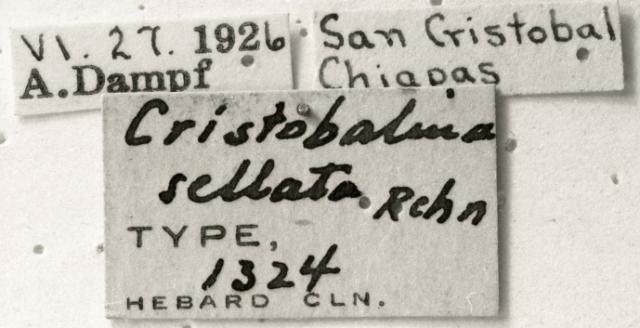 VI. 27. 1926
A. Dampf
San Cristobal
Chiapas
Cristobalina
sellata Rehn
TYPE,
1324
HEBARD CLN.